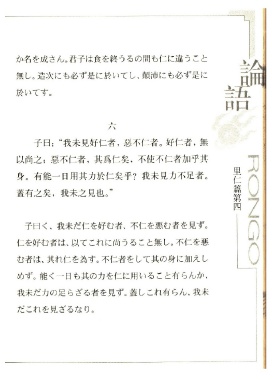 か名を成さん。君子は食を終うるの間も仁に違うこと
無し。造次にも必ず是に於いてし、顚沛にも必ず是に
於いてす。
六
子曰：“我未見好仁者，惡不仁者。好仁者，無
以尚之；惡不仁者，其爲仁矣，不使不仁者加乎其
身。有能一日用其力於仁矣乎？我未見力不足者。
蓋有之矣，我未之見也。”
子曰く、我未だ仁を好む者、不仁を悪む者を見ず。
仁を好む者は、以てこれに尚うること無し。不仁を悪
む者は、其れ仁を為す。不仁者をして其の身に加えし
めず。能く一日も其の力を仁に用いること有らんか、
我未だ力の足らざる者を見ず。蓋しこれ有らん、我未
だこれを見ざるなり。
論語
RONGO
里仁篇第四